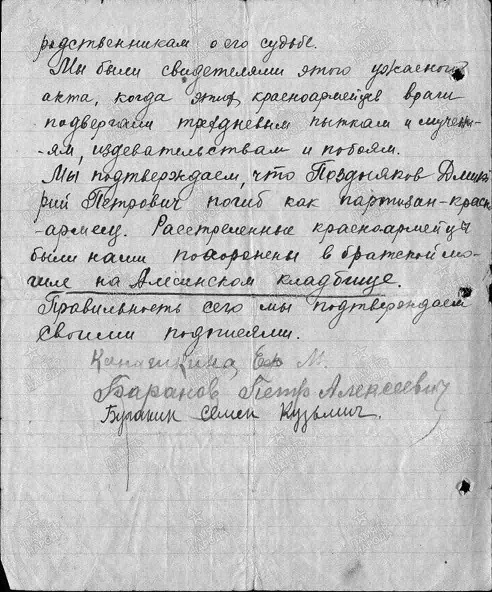 родственникам о его судьбе.
Мы были свидетелями этого ужасного
акта, когда этих красноармейцев враги
подвергали трехдневным пыткам и мучени-
-ям, издевательствам и побоям.
Мы подтверждаем, что Поздняков Дмит
рий Петрович погиб как партизан-красн
-армеец. Расстреленные красноармейцы
были нами похоронены в братской мо-
гиле на Алсинском кладбище.
Правильность сего мы подтверждаем
своими подписями.
М.
Баранов Петр Алексеевич
Семен Кузьмич.